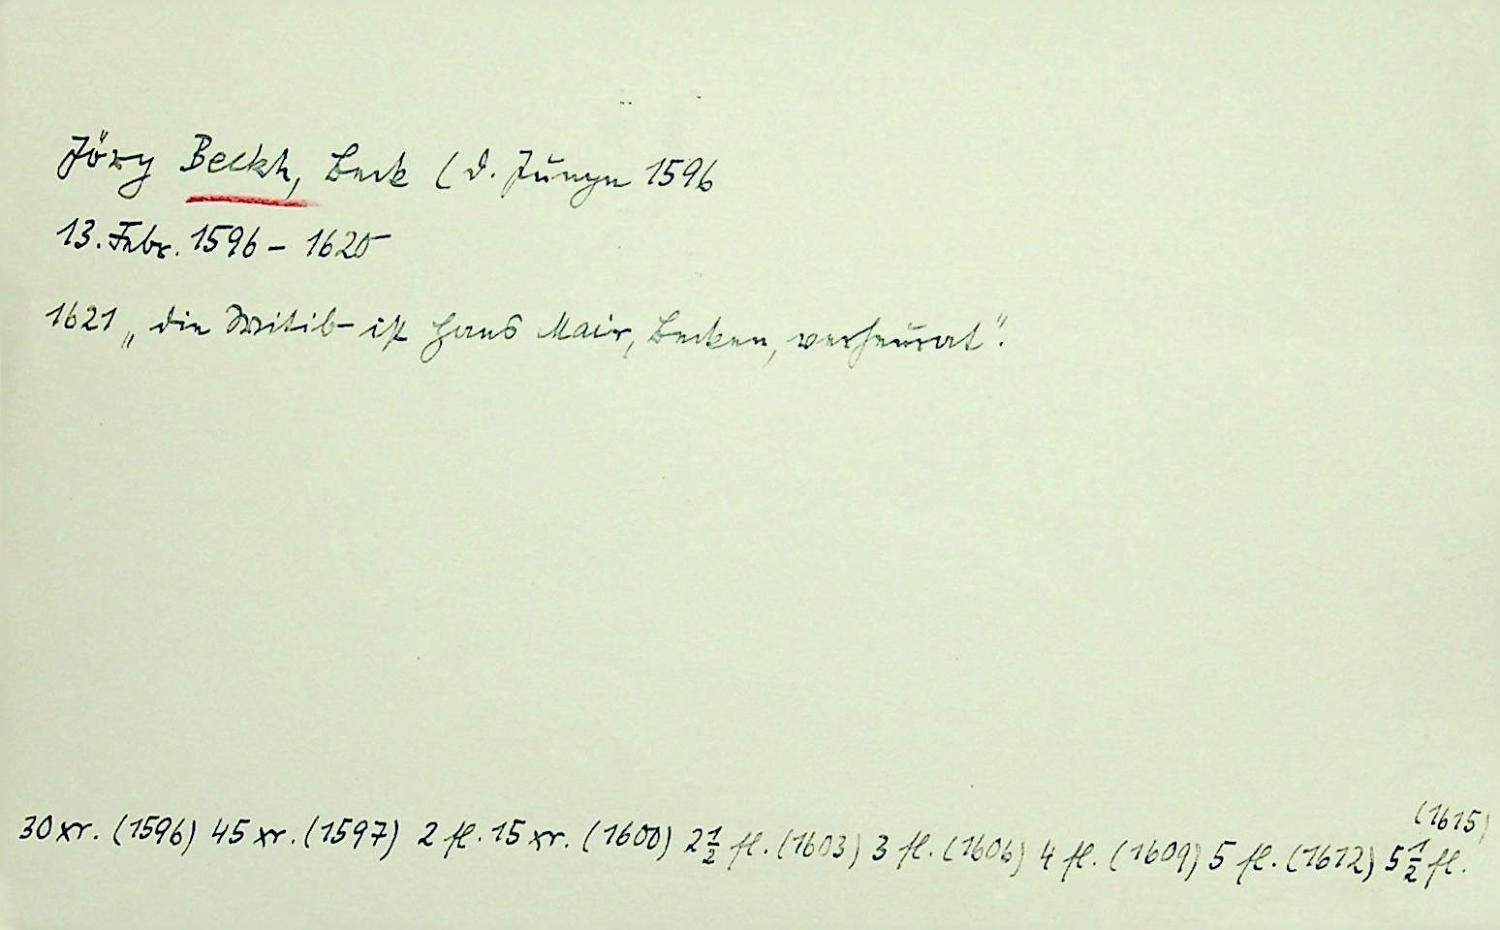 Jörg Beckh, Beck (d. Junge 1596
13. Febr. 1596 – 1620
1621 „die Witib ist Hans Mair, Becken, verheurat".
(1615)
30 xr. (1596) 45 xr. (1597) 2 fl. 15 xr. (1600) 2½ fl. (1603) 3 fl. (1606) 4 fl. (1609) 5 fl. (1612) 5½ fl.